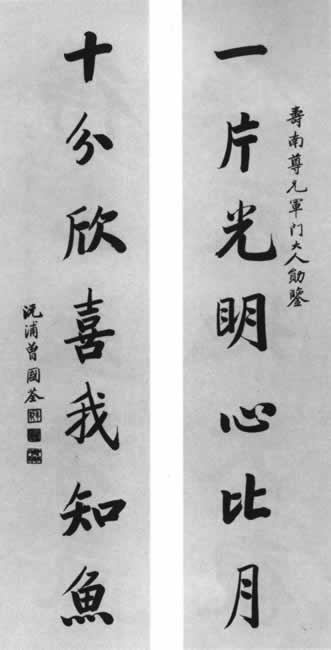 壽南尊兄軍門大人勛鑒
一片光明心比月
十分欣喜我知魚
沅浦曾國荃